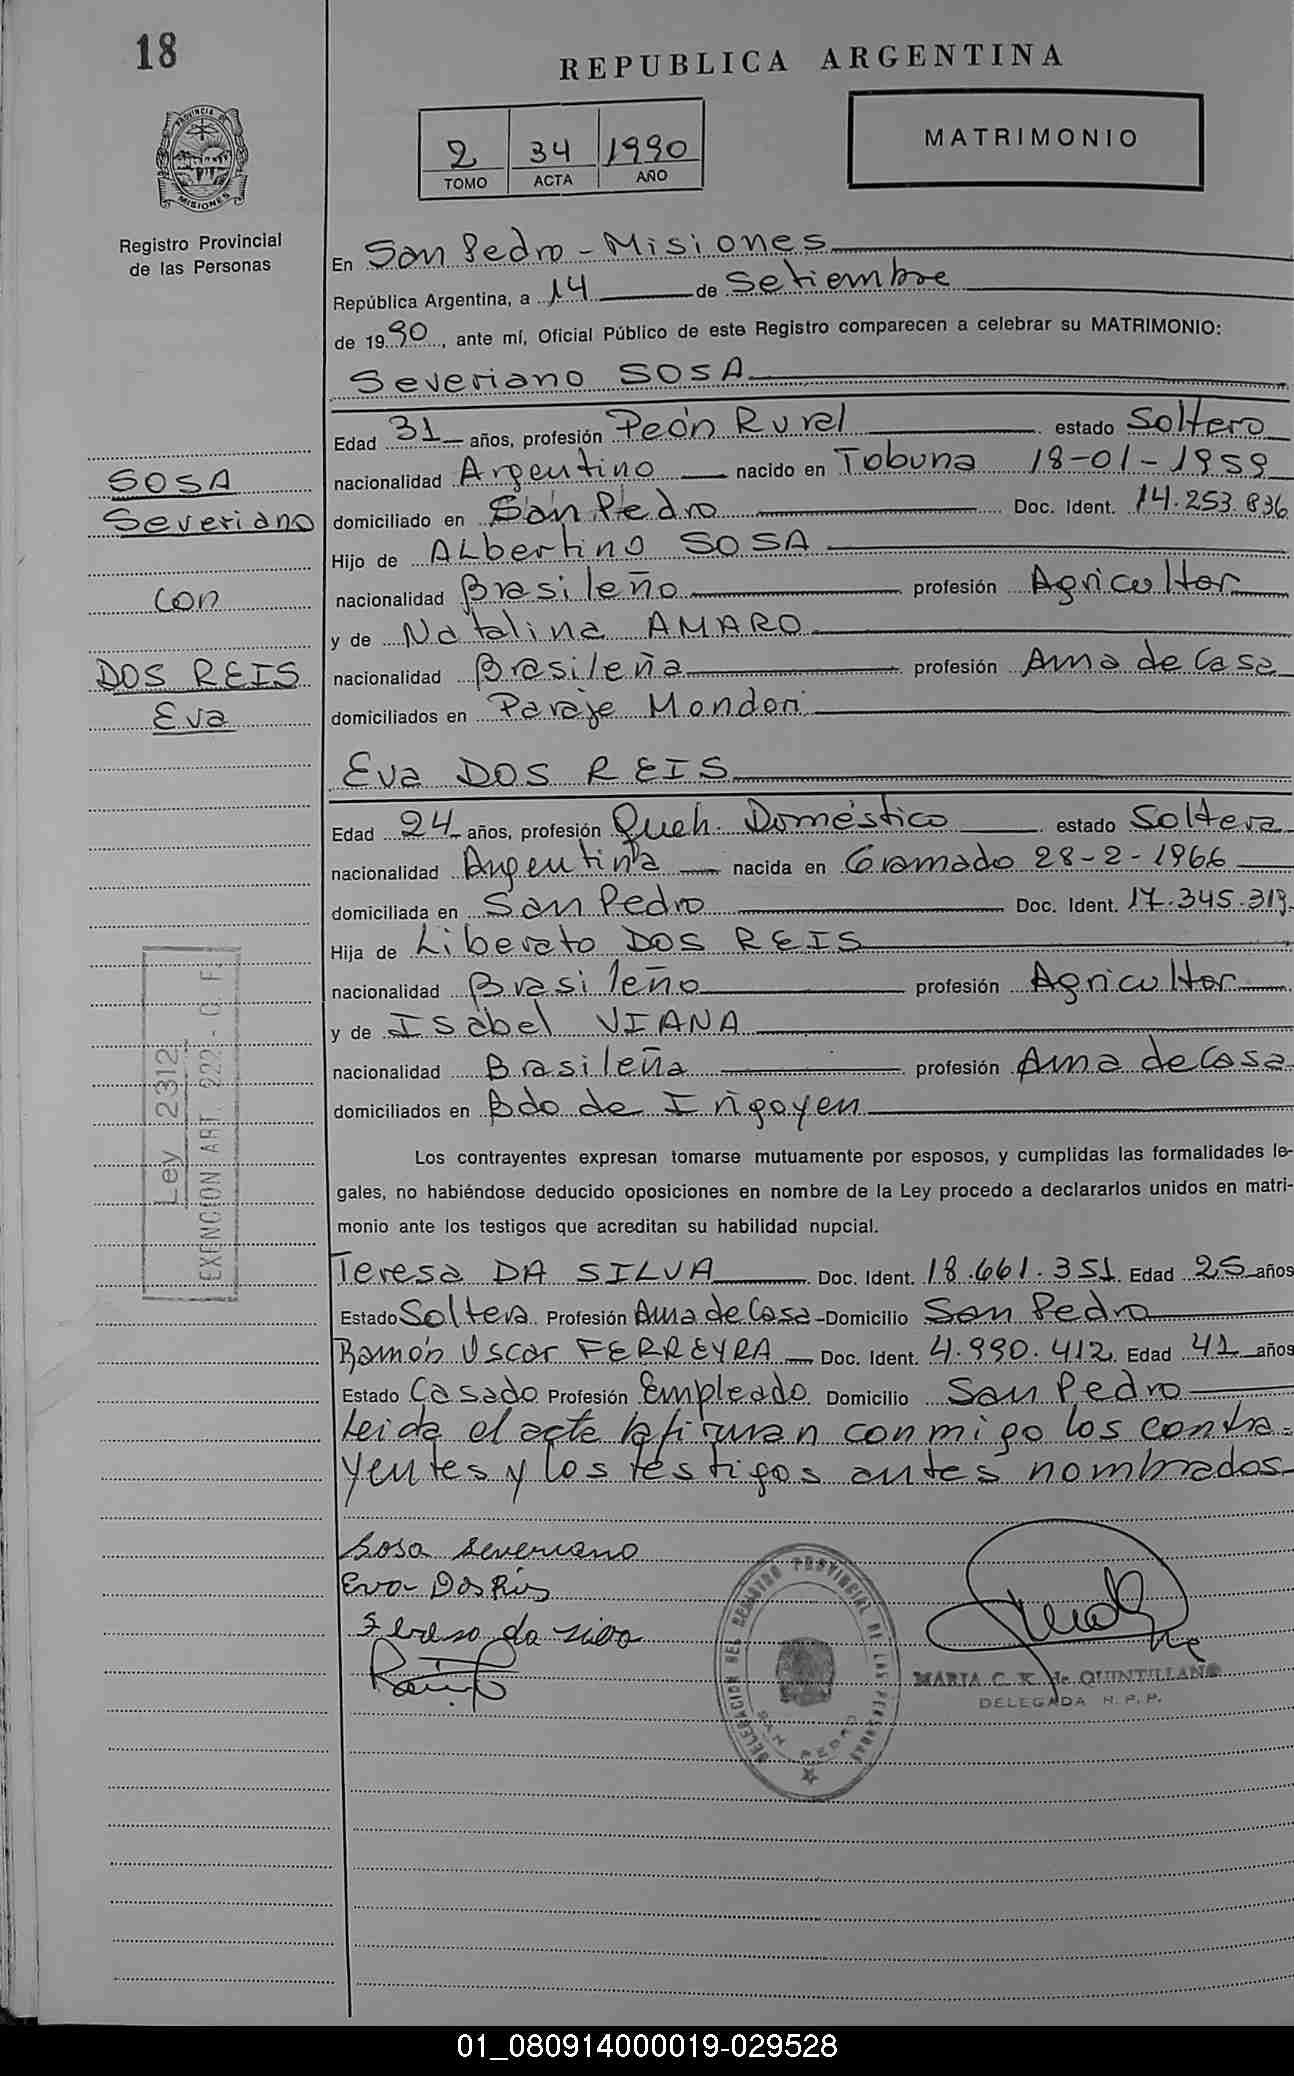 18
REPUBLICA ARGENTINA
PROVINCIA DE
MISIONES
Registro Provincial
de las Personas
2 34 1990
TOMO ACTA AÑO
MATRIMONIO
En San Pedro - Misiones
República Argentina, a 14 de Setiembre
de 1990, ante mí, Oficial Público de este Registro comparecen a celebrar su MATRIMONIO:
Severiano SOSA
Edad 31 años, profesión Peón Rural estado Soltero
nacionalidad Argentino nacido en Tobuna 18-01-1959
domiciliado en San Pedro Doc. Ident. 14.253.836
Hijo de ALbertino SOSA
nacionalidad Brasileño profesión Agricultor
y de Natalina AMARO
nacionalidad Brasileña profesión Ama de Casa
domiciliados en Paraje Mondori
SOSA
Severiano
con
DOS REIS
Eva
Eva DOS REIS
Edad 24 años, profesión Queh. Doméstico estado Soltera
nacionalidad Argentina nacida en Gramado 28-2-1966
domiciliada en San Pedro Doc. Ident. 17.345.319
Hija de Liberato DOS REIS
nacionalidad Brasileño profesión Agricultor
y de Isabel VIANA
nacionalidad Brasileña profesión Ama de Casa
domiciliados en Bdo de Irigoyen
Ley 2312
EXENCION ART. 222 - C. F.
Los contrayentes expresan tomarse mutuamente por esposos, y cumplidas las formalidades le-
gales, no habiéndose deducido oposiciones en nombre de la Ley procedo a declararlos unidos en matri-
monio ante los testigos que acreditan su habilidad nupcial.
Teresa DA SILVA Doc. Ident. 18.661.351 Edad 25 años
Estado Soltera Profesión Ama de Casa - Domicilio San Pedro
Ramón Oscar FERREYRA Doc. Ident. 4.990.412 Edad 41 años
Estado Casado Profesión Empleado Domicilio San Pedro
Leida el acta la firman conmigo los contra-
yentes y los testigos antes nombrados
Sosa Severiano
Eva Dos Reis
Teresa da silva
DELEGACION DEL REGISTRO PROVINCIAL DE LAS PERSONAS
SAN PEDRO
MARIA C. K. de QUINTILLANO
DELEGADA R. P. P.
01_080914000019-029528